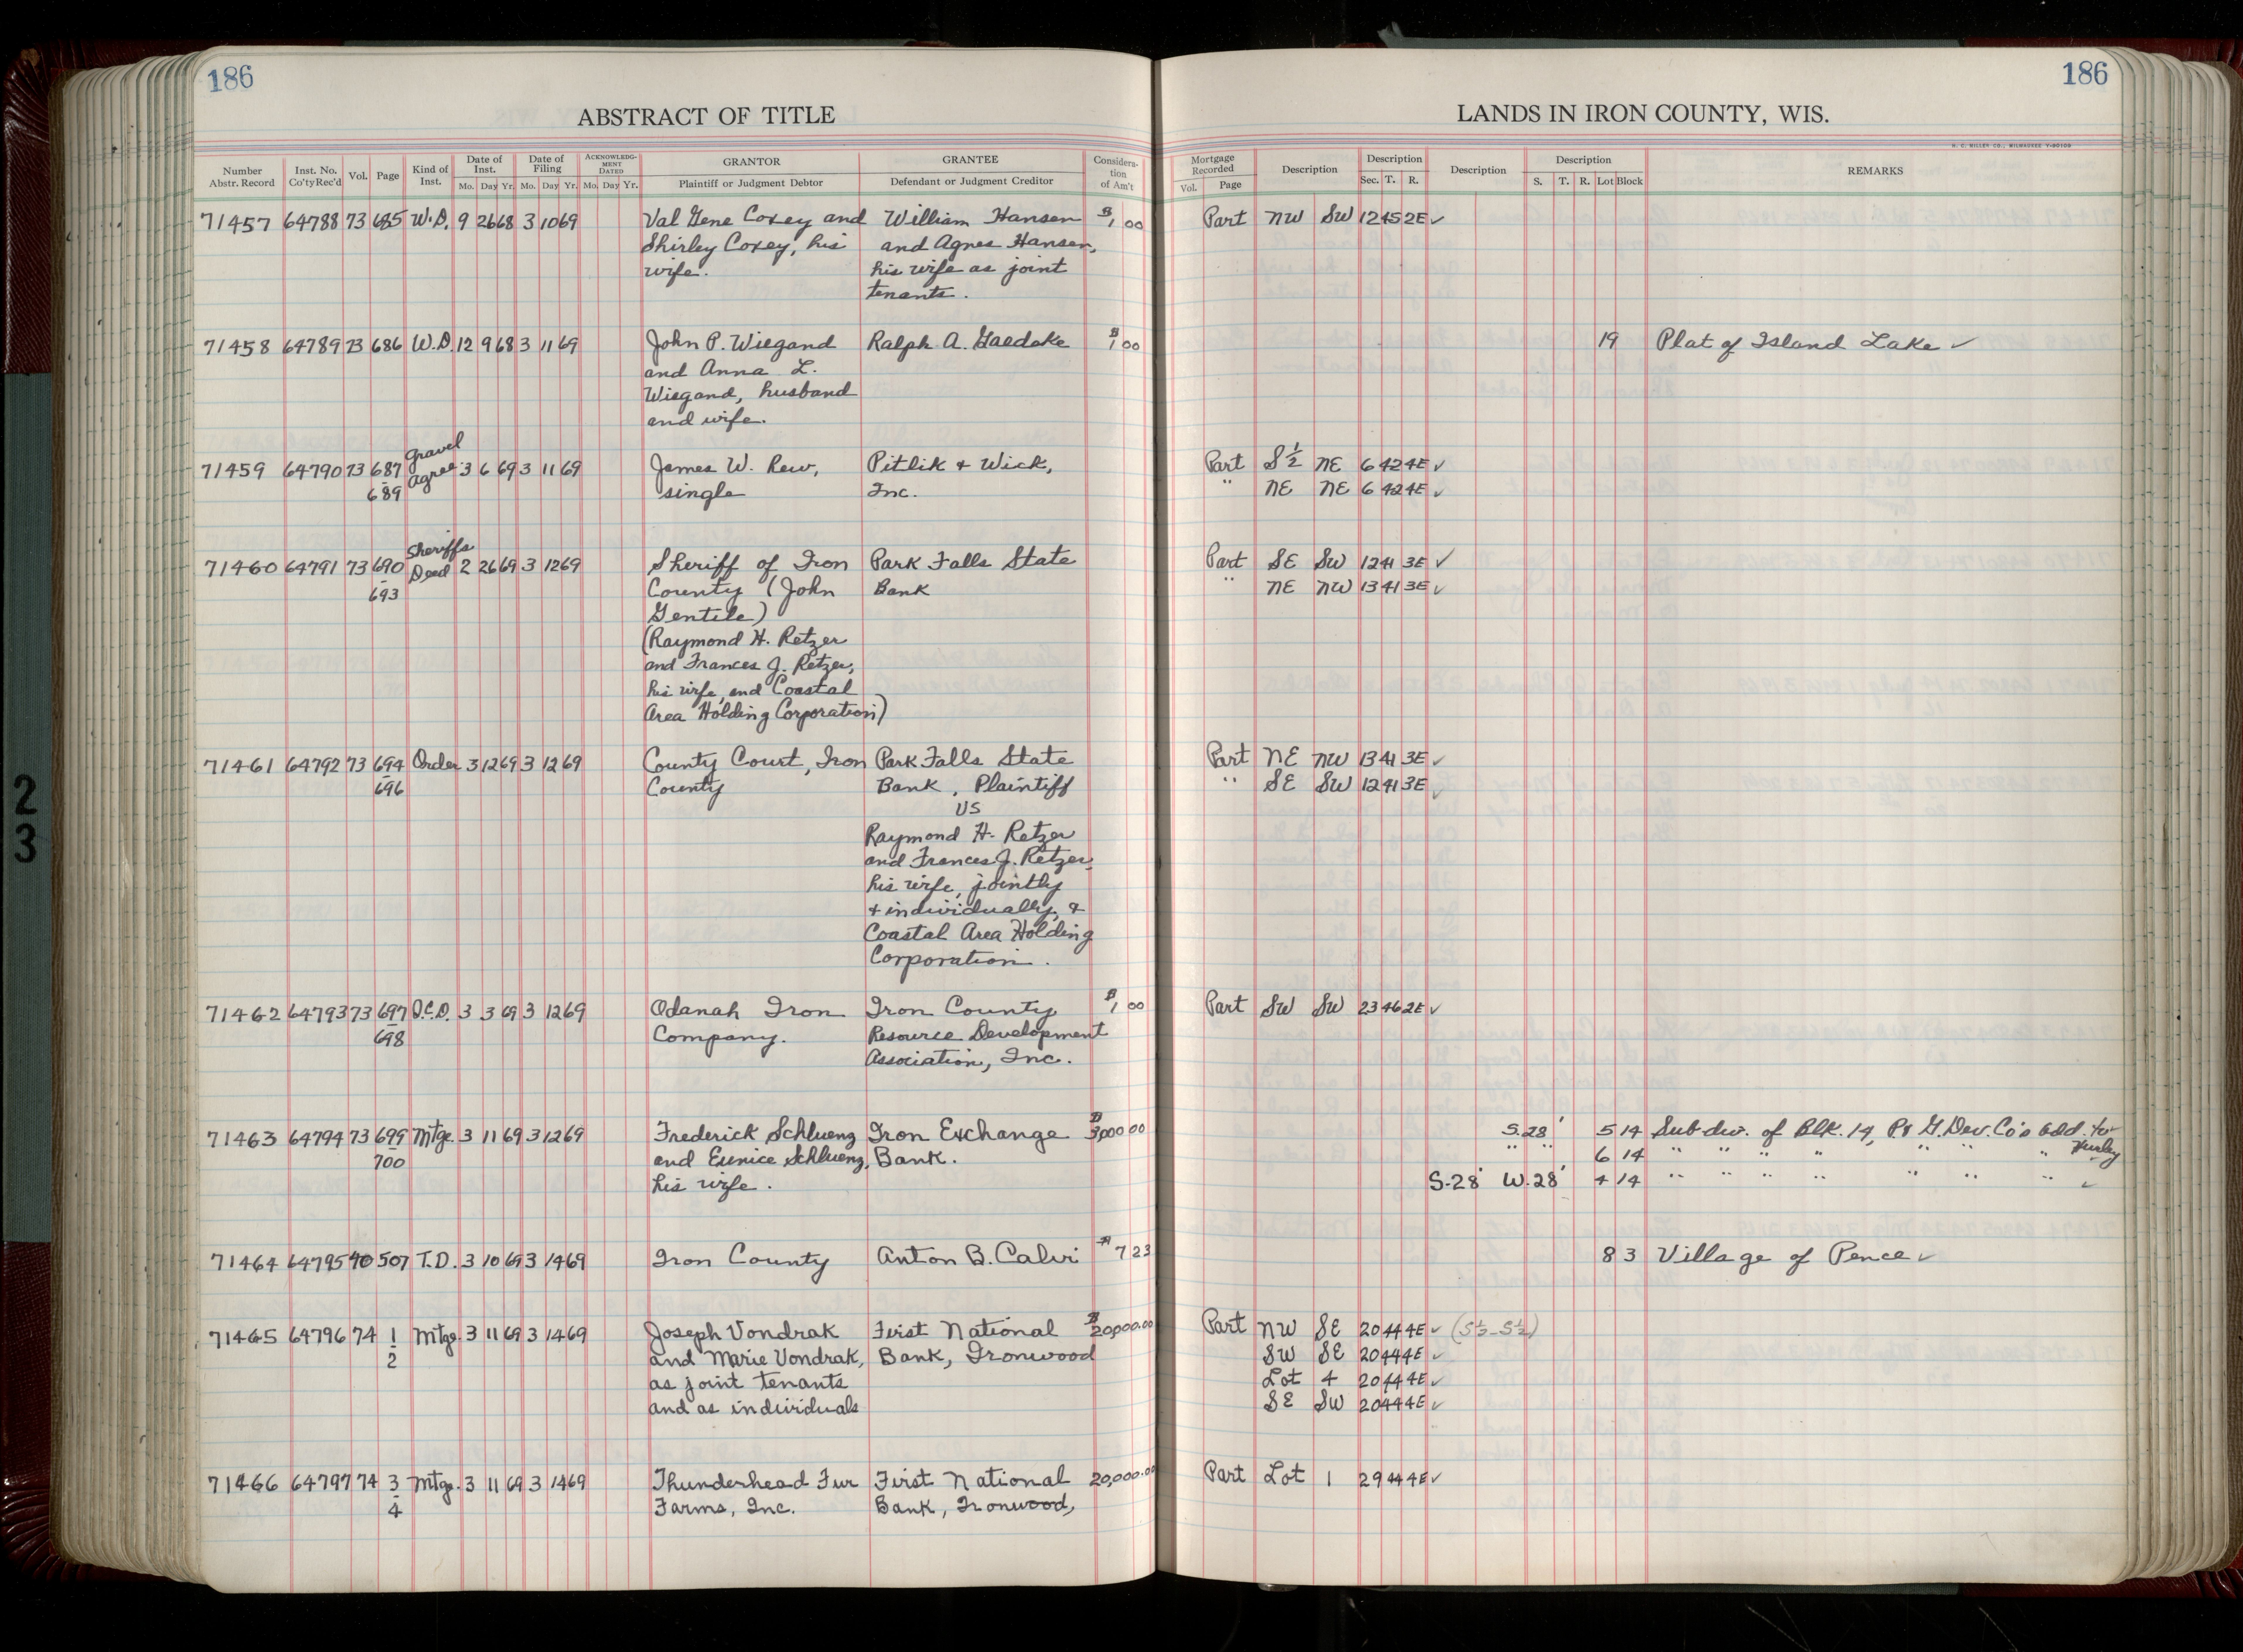 186
186
ABSTRACT OF TITLE
LANDS IN IRON COUNTY, WIS.
H. C. MILLER CO., MILWAUKEE Y-90109
Number Abstr. Record Inst. No. Co'ty Rec'd Vol. Page Kind of Inst. Date of Inst. Mo. Day Yr. Date of Filing Mo. Day Yr. ACKNOWLEDGMENT DATED Mo. Day Yr. GRANTOR Plaintiff or Judgment Debtor GRANTEE Defendant or Judgment Creditor Consideration of Am't
Mortgage Recorded Vol. Page Description Description Sec. T. R. Description Description S. T. R. Lot Block REMARKS
71457 64788 73 685 W.D. 9 26 68 3 10 69 Val Gene Coxey and William Hansen $1 00 Part NW SW 12 45 2E ✓
Shirley Coxey, his and Agnes Hansen,
wife. his wife as joint
tenants.
71458 64789 73 686 W.D. 12 9 68 3 11 69 John P. Wiegand Ralph A. Gaedake $1 00 19 Plat of Island Lake ✓
and Anna L.
Wiegand, husband
and wife.
71459 64790 73 687 Gravel agree. 3 6 69 3 11 69 James W. Rew, Pitlik + Wick, Part S½ NE 6 42 4E ✓
689 single Inc. " NE NE 6 42 4E ✓
71460 64791 73 690 Sheriffs Deed 2 26 69 3 12 69 Sheriff of Iron Park Falls State Part SE SW 12 41 3E ✓
693 County (John Bank " NE NW 13 41 3E ✓
Gentile)
(Raymond H. Retzer
and Frances J. Retzer,
his wife, and Coastal
Area Holding Corporation)
71461 64792 73 694 Order 3 12 69 3 12 69 County Court, Iron Park Falls State Part NE NW 13 41 3E ✓
696 County Bank, Plaintiff " SE SW 12 41 3E ✓
US
Raymond H. Retzer
and Frances J. Retzer,
his wife, jointly
+ individually, &
Coastal Area Holding
Corporation.
71462 64793 73 697 Q.C.D. 3 3 69 3 12 69 Odanah Iron Iron County $1 00 Part SW SW 23 46 2E ✓
698 Company. Resource Development
Association, Inc.
71463 64794 73 699 Mtge. 3 11 69 3 12 69 Frederick Schlueng Iron Exchange $3,000 00 S.28' 5 14 Subdiv. of Blk. 14, Pt G. Dev. Co's add. to Hurley
700 and Eunice Schlueng, Bank. " " 6 14 " " " " " " "
his wife. S.28' W.28' 4 14 " " " " " " " ✓
71464 64795 40 507 T.D. 3 10 69 3 14 69 Iron County Anton B. Calvi $7 23 8 3 Village of Pence ✓
71465 64796 74 1 Mtge. 3 11 69 3 14 69 Joseph Vondrak First National $20,000.00 Part NW SE 20 44 4E ✓ (S½-S½)
2 and Marie Vondrak, Bank, Ironwood SW SE 20 44 4E ✓
as joint tenants Lot 4 20 44 4E ✓
and as individuals SE SW 20 44 4E ✓
71466 64797 74 3 Mtge. 3 11 69 3 14 69 Thunderhead Fur First National 20,000.00 Part Lot 1 29 44 4E ✓
4 Farms, Inc. Bank, Ironwood,
23